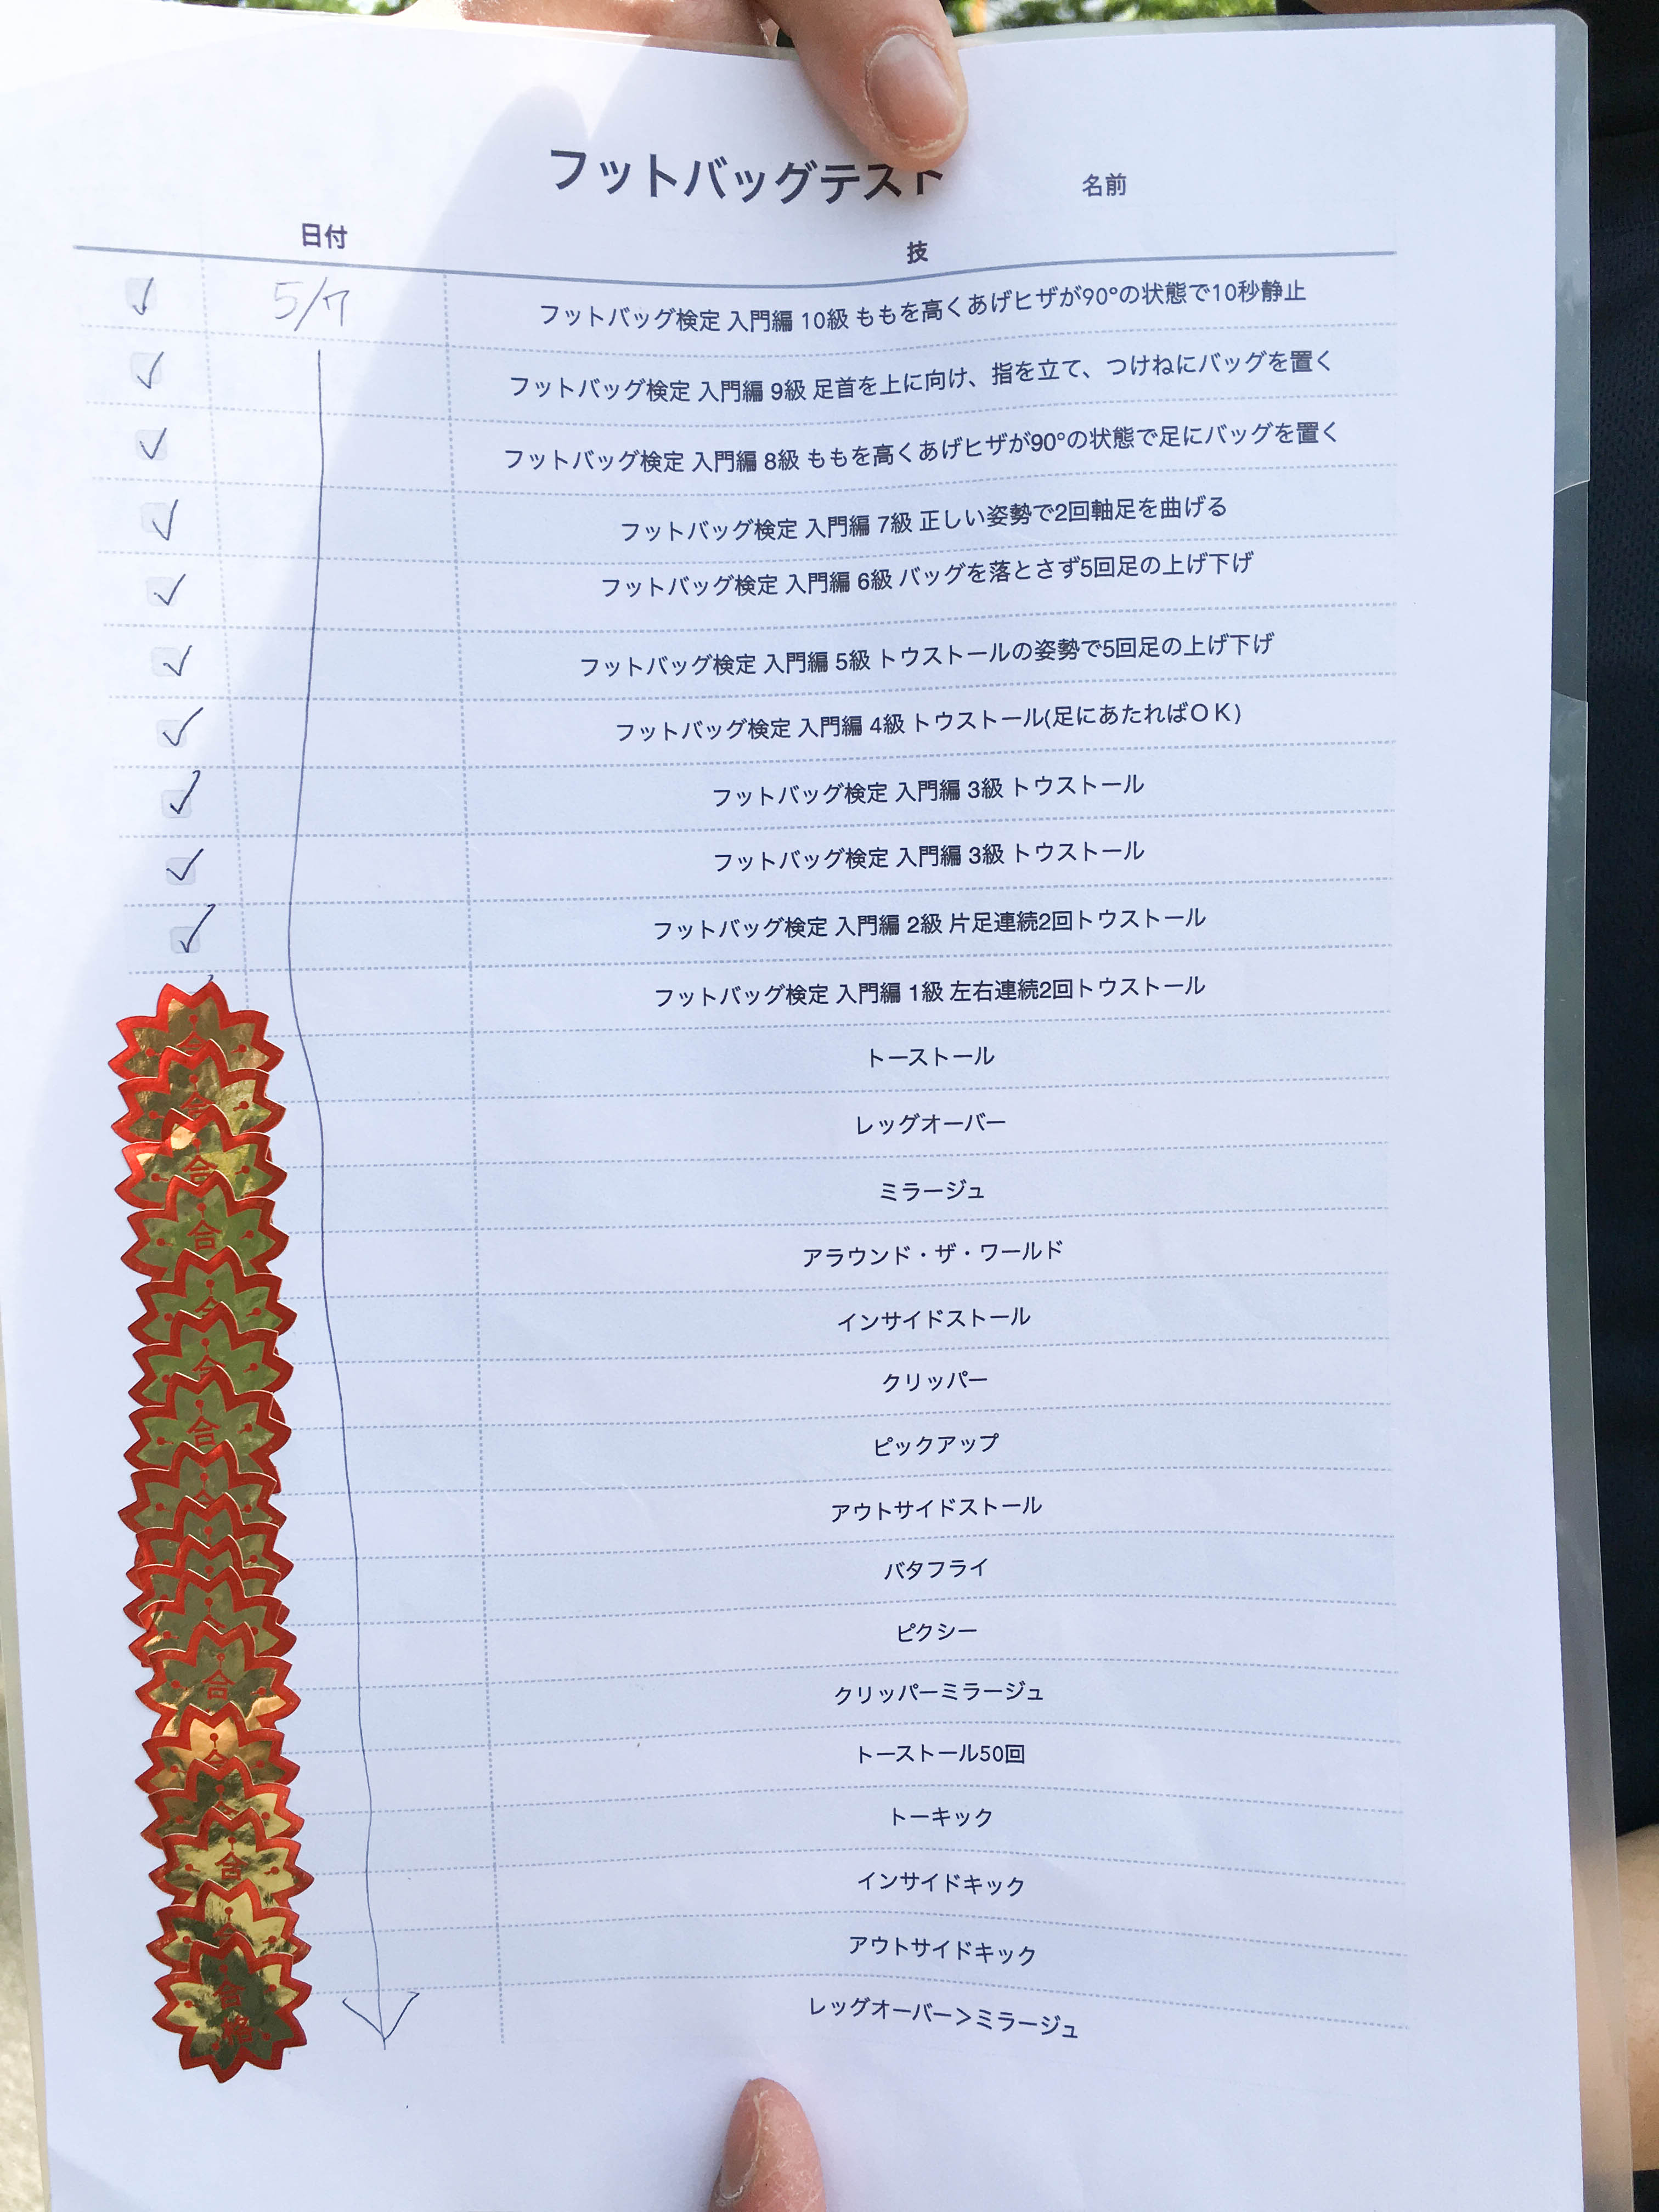 フットバッグテスト 名前
日付 技
5/7 フットバッグ検定 入門編 10級 ももを高くあげヒザが90°の状態で10秒静止
フットバッグ検定 入門編 9級 足首を上に向け、指を立て、つけねにバッグを置く
フットバッグ検定 入門編 8級 ももを高くあげヒザが90°の状態で足にバッグを置く
フットバッグ検定 入門編 7級 正しい姿勢で2回軸足を曲げる
フットバッグ検定 入門編 6級 バッグを落とさず5回足の上げ下げ
フットバッグ検定 入門編 5級 トウストールの姿勢で5回足の上げ下げ
フットバッグ検定 入門編 4級 トウストール(足にあたればＯＫ)
フットバッグ検定 入門編 3級 トウストール
フットバッグ検定 入門編 3級 トウストール
フットバッグ検定 入門編 2級 片足連続2回トウストール
フットバッグ検定 入門編 1級 左右連続2回トウストール
トーストール
レッグオーバー
合 ミラージュ
合 アラウンド・ザ・ワールド
インサイドストール
クリッパー
合 ピックアップ
アウトサイドストール
バタフライ
ピクシー
合 クリッパーミラージュ
トーストール50回
トーキック
合 インサイドキック
アウトサイドキック
合格 レッグオーバー＞ミラージュ